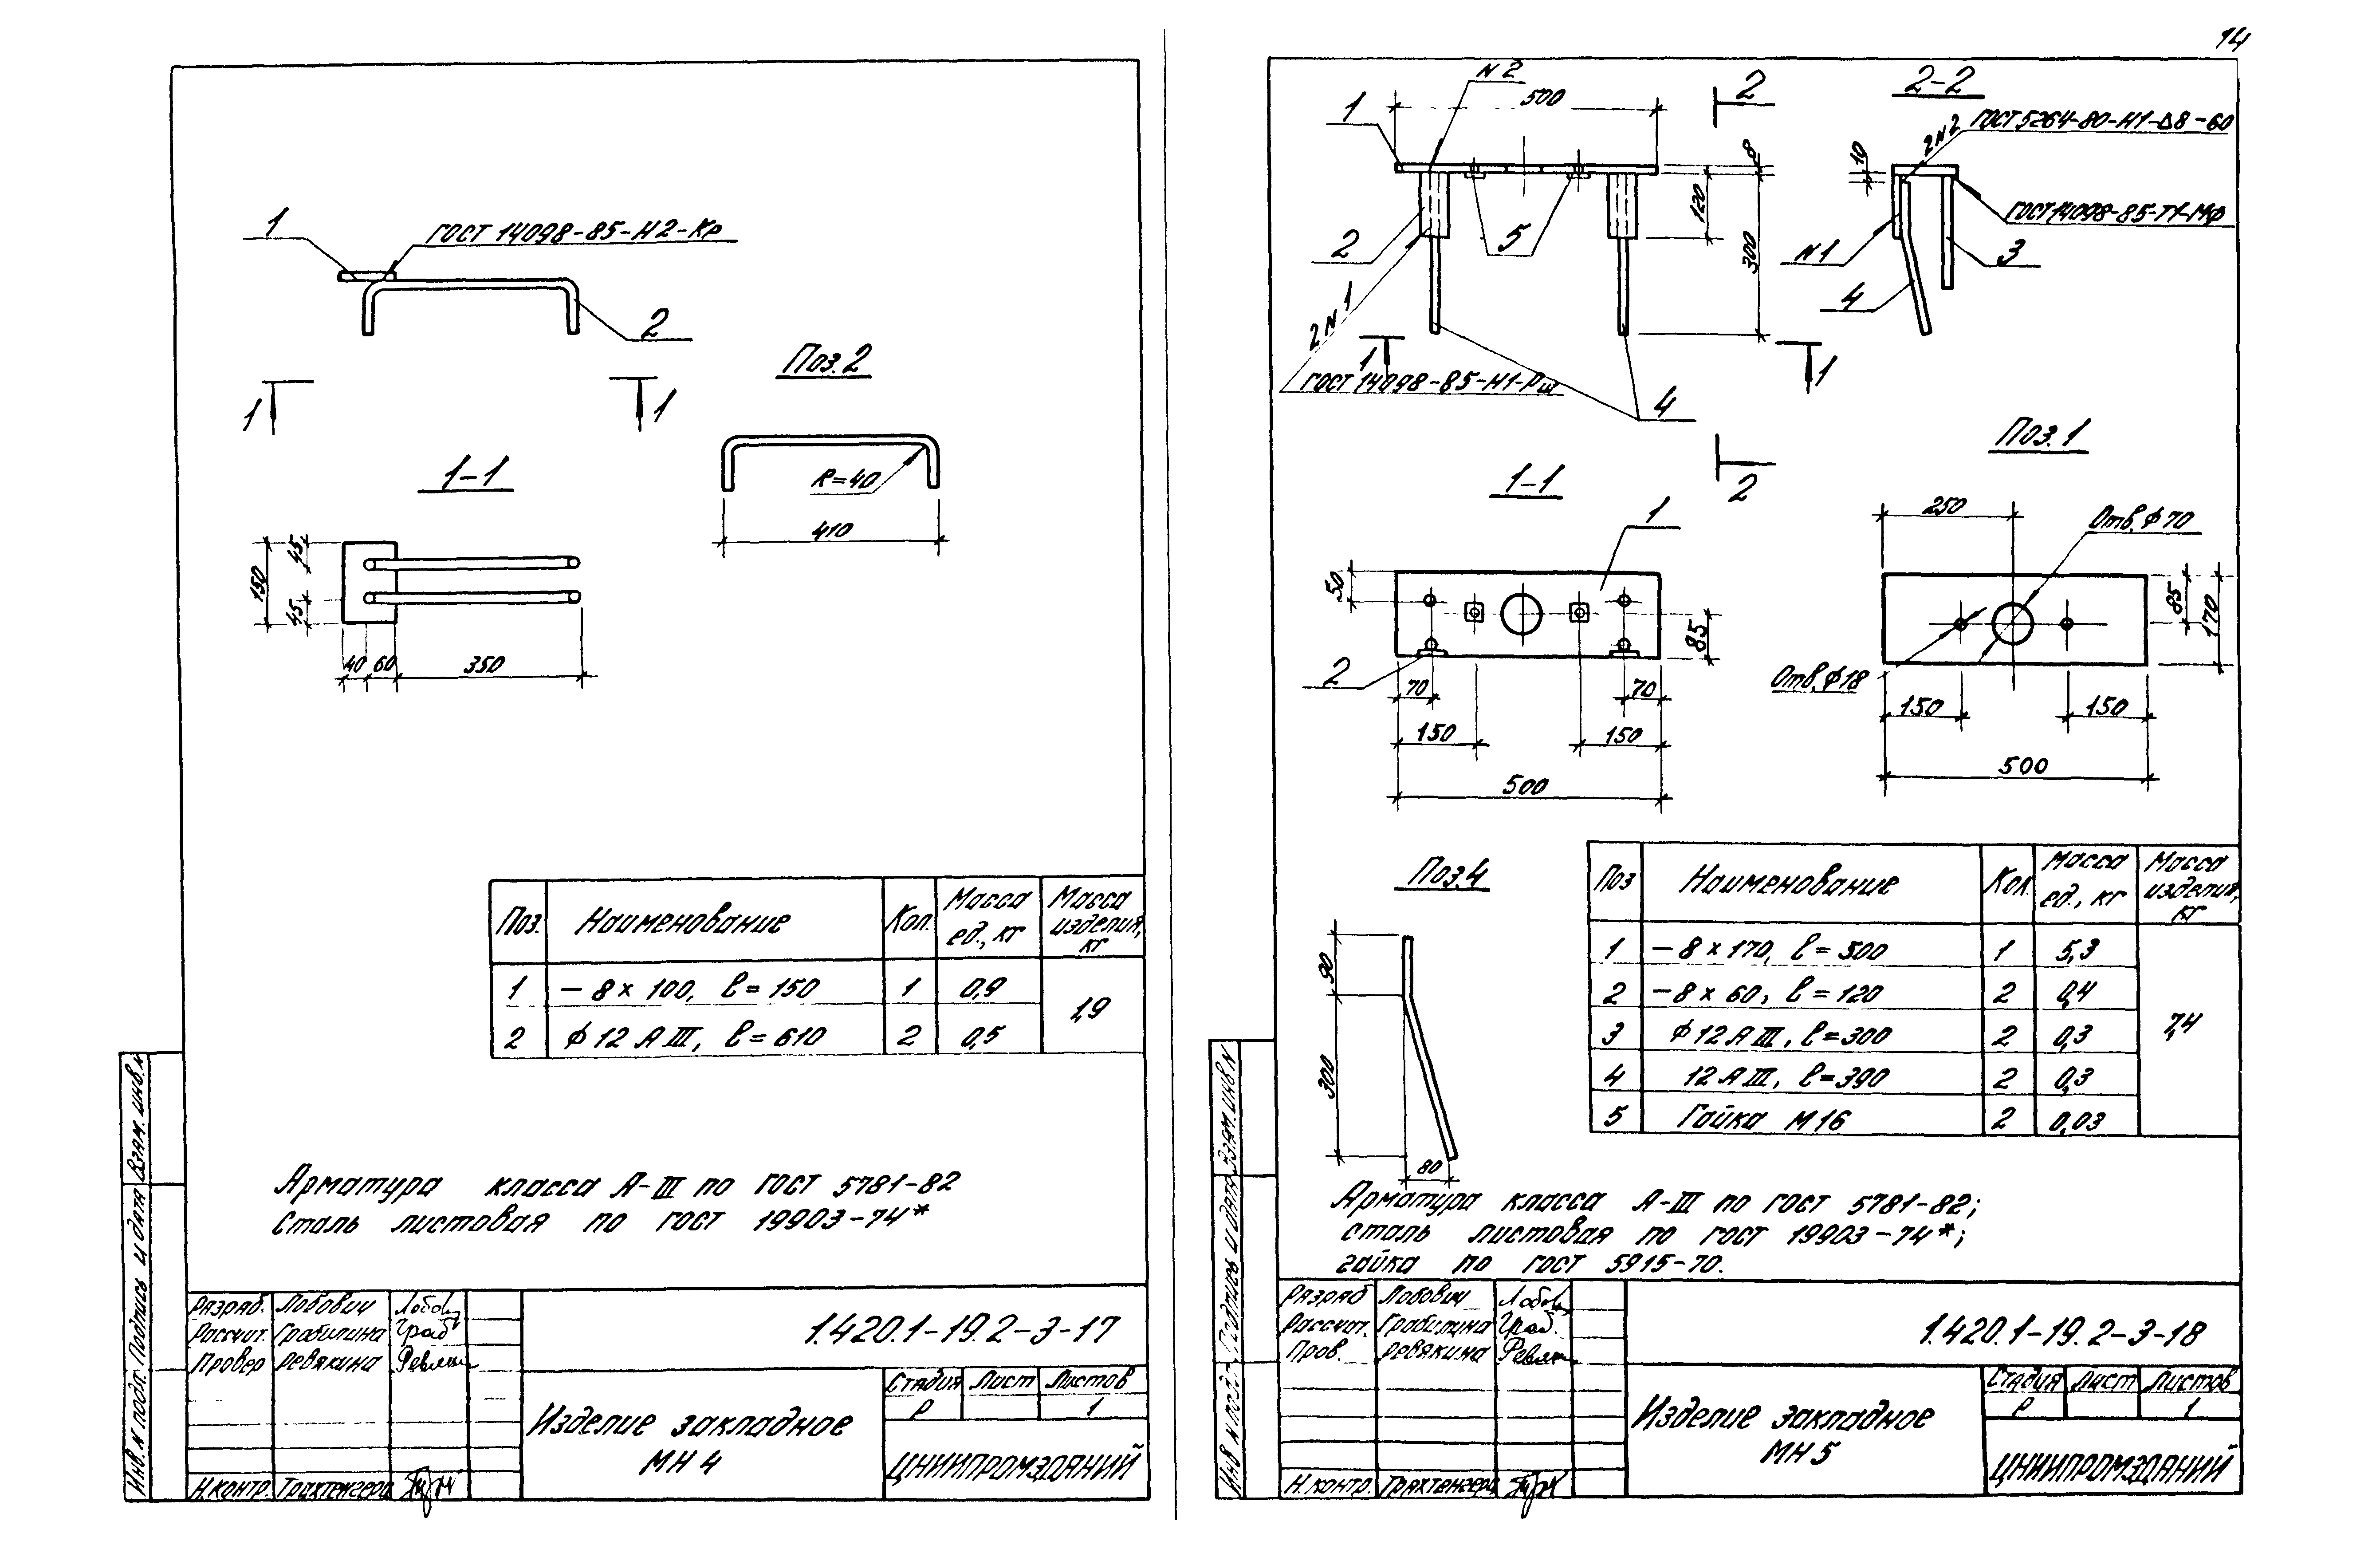 14
1
ГОСТ 14098-85-Н2-Кр
2
1
1
Поз.2
R=40
410
1-1
150
45
45
40
60
350
Поз.
Наименование
Кол.
Масса ед., кг
Масса изделия, кг
1
— 8 × 100, ℓ = 150
1
0,9
1,9
2
ϕ 12 А III, ℓ = 610
2
0,5
Арматура класса А-III по ГОСТ 5781-82
Сталь листовая по ГОСТ 19903-74*
Инв. N подл.
Подпись и дата
Взам. инв. N
Разраб. Лобович
Рассчит. Грабилина
Провер Ревякина
Н.контр. Трахтенгерц
1.420.1-19.2-3-17
Изделие закладное
МН 4
Стадия
Лист
Листов
Р
1
ЦНИИПРОМЗДАНИЙ
N 2
500
1
2
2-2
ГОСТ 5264-80-Н1-Δ8-60
2 N 2
10
8
120
300
ГОСТ 14098-85-Т1-Мф
N 1
3
4
2
5
2 N 1
1
ГОСТ 14098-85-Н1-Рш
4
1
2
1-1
1
50
85
2
70
70
150
150
500
Поз.1
250
Отв. ϕ 70
85
170
Отв. ϕ 18
150
150
500
Поз.4
90
300
80
Поз
Наименование
Кол.
Масса ед., кг
Масса изделия, кг
1
— 8 × 170, ℓ = 500
1
5,3
7,4
2
— 8 × 60, ℓ = 120
2
0,4
3
ϕ 12 А III, ℓ = 300
2
0,3
4
12 А III, ℓ = 390
2
0,3
5
Гайка М 16
2
0,03
Арматура класса А-III по ГОСТ 5781-82;
сталь листовая по ГОСТ 19903-74*;
гайка по ГОСТ 5915-70.
Инв N подл.
Подпись и дата
Взам. инв N
Разраб Лобович
Рассчит. Грабилина
Пров. Ревякина
Н.контр. Трахтенгерц
1.420.1-19.2-3-18
Изделие закладное
МН 5
Стадия
Лист
Листов
Р
1
ЦНИИПРОМЗДАНИЙ